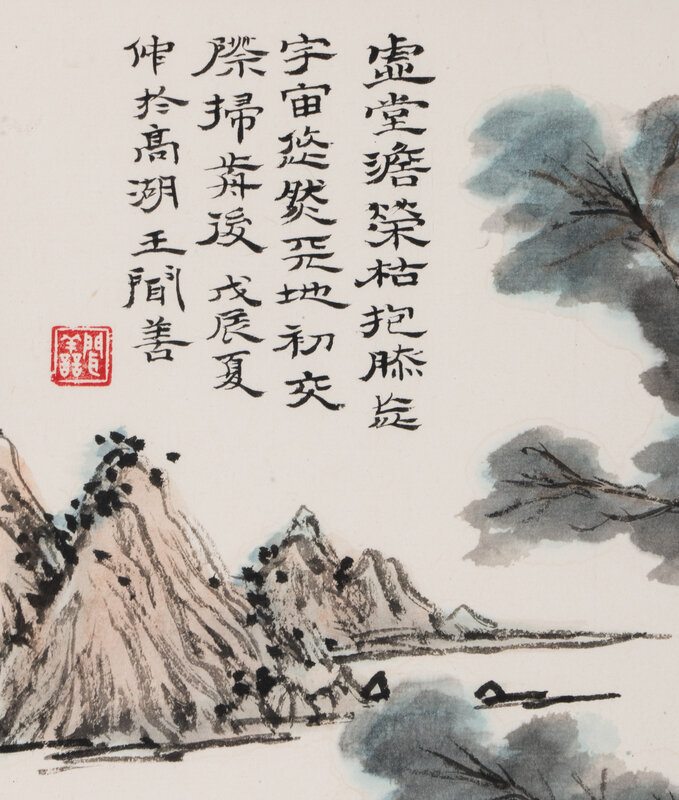 虛堂澹榮枯抱膝
宇宙悠然天地初交
際掃歬後 戊辰夏
仲於高湖王聞善